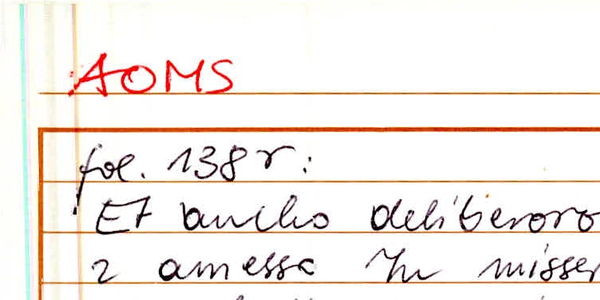 AOMS
fol. 138r:
Et ancho deliberoro
2 amessa In misser